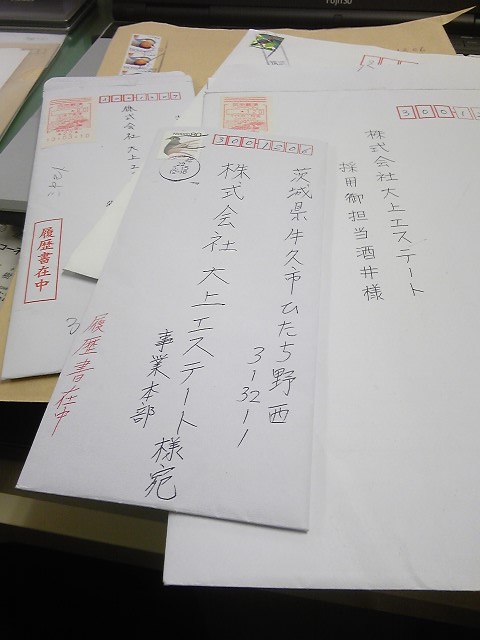 3001206
茨城県牛久市ひたち野西
3-32-1
株式会社 大上エステート
事業本部 様宛
履歴書在中
30012
株式会社大上エステート
採用御担当酒井様
株式会社 大上エ
履歴書在中
FUJITSU